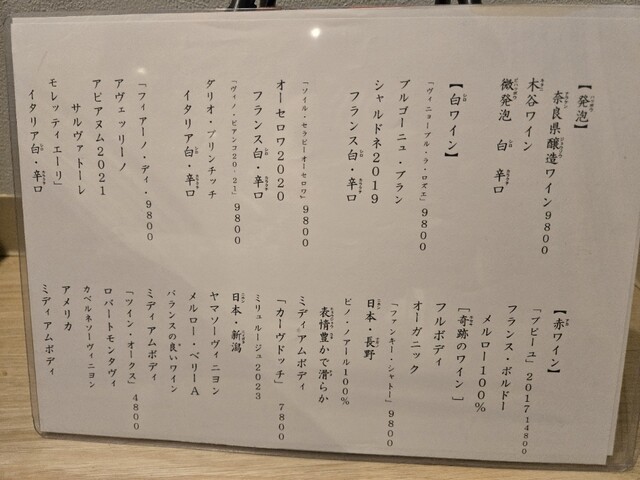 【発泡】
奈良県醸造ワイン9800
木谷ワイン
微発泡 白 辛口
【白ワイン】
「ヴィニョーブル・ラ・ロズエ」9800
ブルゴーニュ・ブラン
シャルドネ2019
フランス白・辛口
「ソイル・セラピーオーセロワ」9800
オーセロワ2020
フランス白・辛口
「ヴィノ・ビアンコ20・21」9800
ダリオ・プリンチッチ
イタリア白・辛口
「フィアーノ・ディ・9800
アヴェッリーノ
アピアヌム2021
サルヴァトーレ
モレッティエーリ」
イタリア白・辛口
【赤ワイン】
「ブピーユ」2017 14800
フランス・ボルドー
メルロー100%
[奇跡のワイン]
フルボディ
オーガニック
「ファンキー・シャトー」9800
日本・長野
ピノ・ノアール100%
表情豊かで滑らか
ミディアムボディ
「カーヴドッチ」7800
ミリュルージュ2023
日本・新潟
ヤマソーヴィニヨン
メルロー・ベリーA
バランスの良いワイン
ミディアムボディ
「ツイン・オークス」4800
ロバートモンダヴィ
カベルネソーヴィニヨン
アメリカ
ミディアムボディ